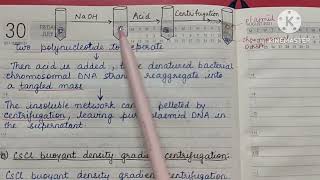 NaOH Acid Centrifugation
plasmid
30 FRIDAY
JULY
chromosomal
Two polynucleotide to separate
Then acid is added, the denatured bacterial
chromosomal DNA strands reaggregate into
a tangled mass
The insoluble network can be pelleted by
centrifugation, leaving pure plasmid DNA in
the supernatant
CsCl buoyant density gradient centrifugation:
CsCl buoyant density gradient centrifugation,
KINEMASTER